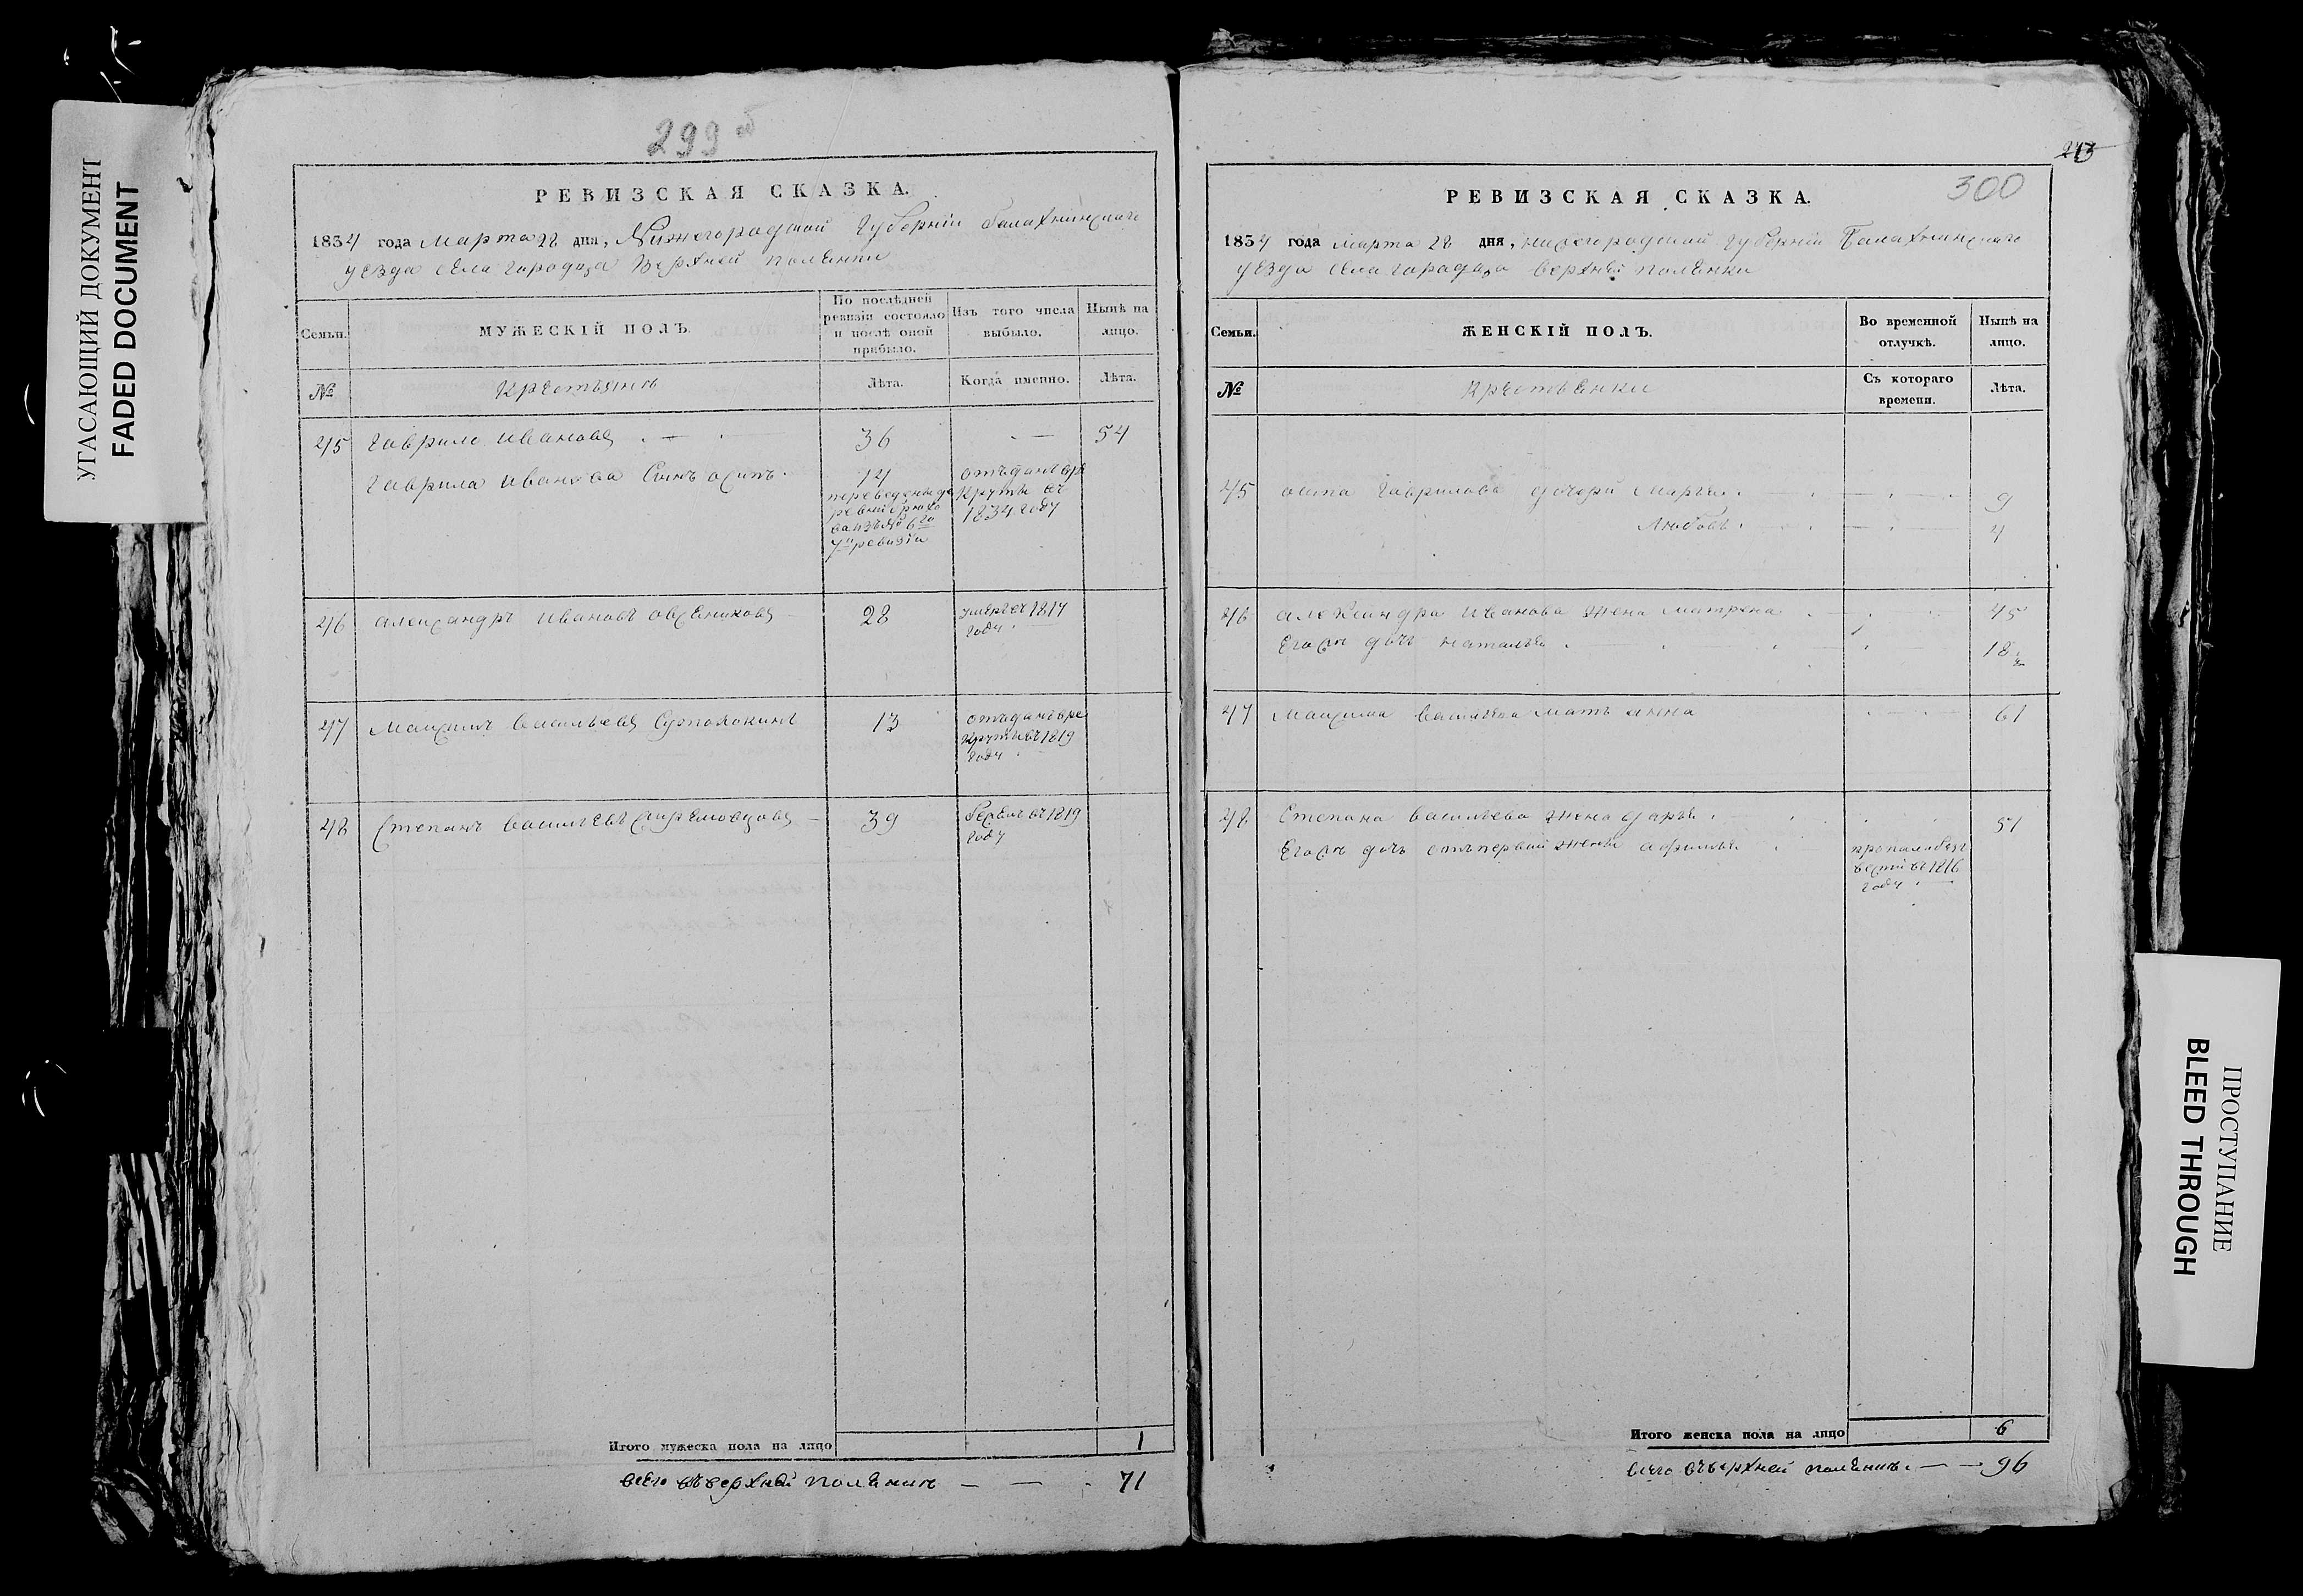 УГАСАЮЩИЙ ДОКУМЕНТ
FADED DOCUMENT
299 об
РЕВИЗСКАЯ СКАЗКА.
1834 года марта 22 дня, Нижегородской Губерніи балахнинскаго
уезда села городца верхней полянки
Семьи.
МУЖЕСКІЙ ПОЛЪ.
По послѣдней ревизіи состояло и послѣ оной прибыло.
Изъ того числа выбыло.
Нынѣ на лицо.
№
крестьянъ
Лѣта.
Когда именно.
Лѣта.
45 гаврило ивановъ 36 54
гаврила иванова Сынъ осипъ 14 отъданъ
рекруты въ
1834 году
переведены
7й ревизіи
46 александръ ивановъ овсениковъ 28 умеръ въ 1817
году
47 Максимъ васильевъ 13 отъданъ в ре
круты въ 1819
году
48 Степанъ васильевъ 39 въ 1819
году
Итого мужеска пола на лицо 1
всего въ верхней полянки 71
243
300
РЕВИЗСКАЯ СКАЗКА.
1834 года марта 22 дня, нижегородской губерніи Балахнинскаго
уезда села городца верхней полянки
Семьи.
ЖЕНСКІЙ ПОЛЪ.
Во временной отлучкѣ.
Нынѣ на лицо.
№
крестьянки
Съ котораго времени.
Лѣта.
45 осипа гаврилова дочери марья 9
Любовь 4
46 александра иванова жена матрена 45
Егоже дочь наталья 18
47 максима васильева мать анна 61
48 Степана васильева жена дарья 51
Егоже дочь отъ первой жены афимья пропала безъ
вести въ 1816
году
Итого женска пола на лицо 6
всего въ верхней полянки 96
ПРОСТУПАНИЕ
BLEED THROUGH